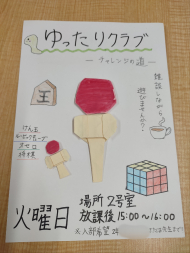 ゆったりクラブ
― チャレンジの道 ―
雑談しながら
遊びませんか?
王
けん玉
ルービックキューブ
将棋
火曜日
場所 2号室
放課後 15:00~16:00
※入部希望